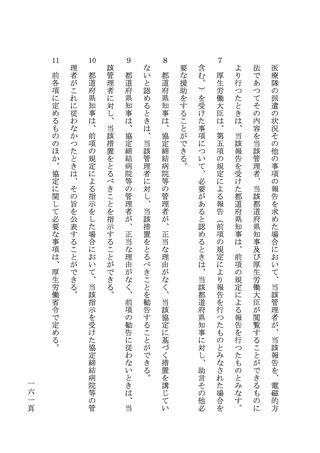 医療隊の派遣の状況その他の事項の報告を求めた場合において、当該管理者が、当該報告を、電磁的方
法であつてその内容を当該管理者、当該都道府県知事及び厚生労働大臣が閲覧することができるものに
より行つたときは、当該報告を受けた都道府県知事は、前項の規定による報告を行つたものとみなす。
7 厚生労働大臣は、第五項の規定による報告（前項の規定により報告を行つたものとみなされた場合を
含む。）を受けた事項について、必要があると認めるときは、当該都道府県知事に対し、助言その他必
要な援助をすることができる。
8 都道府県知事は、協定締結病院等の管理者が、正当な理由がなく、当該協定に基づく措置を講じてい
ないと認めるときは、当該管理者に対し、当該措置をとるべきことを勧告することができる。
9 都道府県知事は、協定締結病院等の管理者が、正当な理由がなく、前項の勧告に従わないときは、当
該管理者に対し、当該措置をとるべきことを指示することができる。
10 都道府県知事は、前項の規定による指示をした場合において、当該指示を受けた協定締結病院等の管
理者がこれに従わなかつたときは、その旨を公表することができる。
11 前各項に定めるもののほか、協定に関して必要な事項は、厚生労働省令で定める。
一六一頁